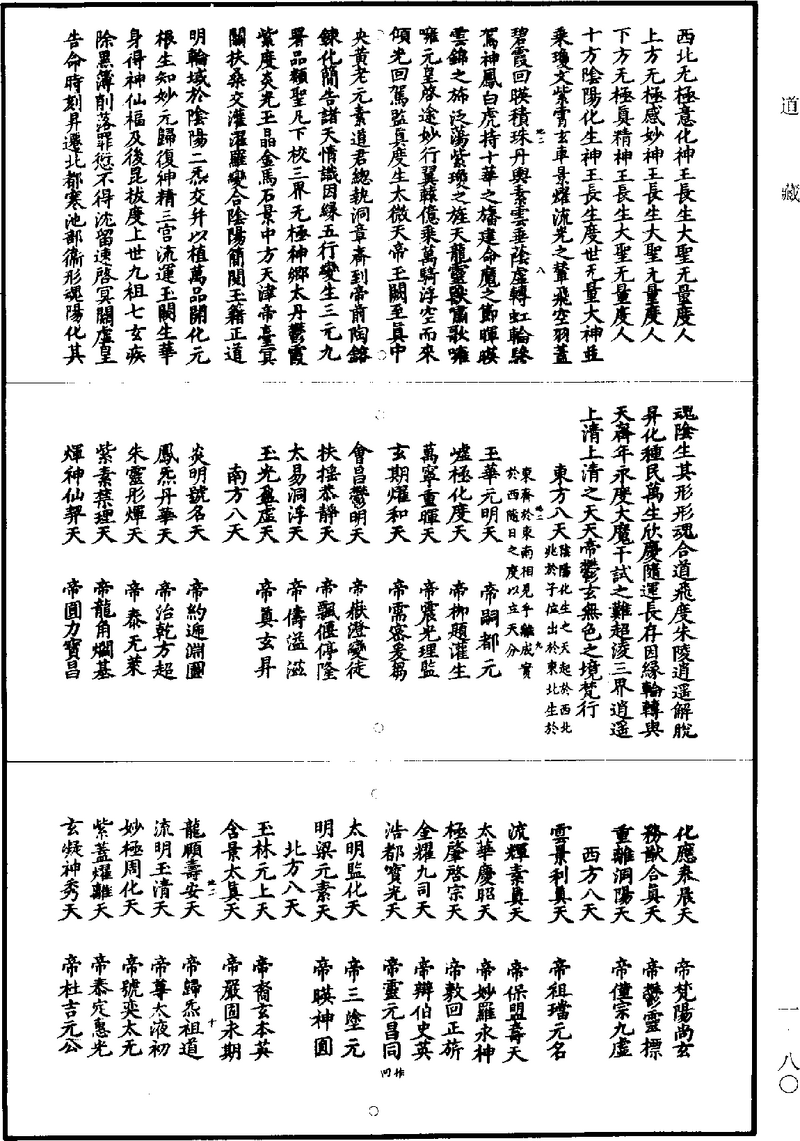 道藏
一·八〇
西北无極意化神王長生大聖无量度人
上方无極感妙神王長生大聖无量度人
下方无極真精神王長生大聖无量度人
十方陰陽化生神王長生度世无量大神並
乘瓊文紫霄玄車景耀流光之輦飛空羽蓋
碧霞回暎積珠丹輿素雲垂陰虛轉虹輪驂
駕神鳳白虎持十華之旛建命魔之節暉暎
雲錦之斾泛蕩紫瓊之旌天龍靈獸嘯歌嗈
嗈元皇啓途妙行翼轅億乘萬騎浮空而來
傾光回駕監真度生太微天帝玉闕至真中
央黃老元素道君總執洞章齎到帝前陶鎔
鍊化簡告諸天情識因緣五行變生三元九
署品類聖凡下校三界无極神鄉太丹鬱霞
紫度炎光玉晶金馬石景中方天津帝臺冥
關扶桑交灌濯羅變合陰陽簡閱玉籍正道
明輪域於陰陽二炁交升以植萬品開化元
根生知妙元歸復神精三宫流運玉闕生華
身得神仙福及後昆拔度上世九祖七玄疾
除黑簿削落罪愆不得沈留速啓冥關虛皇
告命時刻昇遷北都寒池部衛形魂陽化其
魂陰生其形形魂合道飛度朱陵逍遥解脫
昇化種民萬生欣慶隨運長存因緣輪轉與
天齊年永度大魔干試之難超淩三界逍遥
上清上清之天天帝鬱玄無色之境梵行
東方八天陰陽化生之天起於西北
兆於子位出於東北生於
東齊於東南相見乎離成實
於西隨日之度以立天分
玉華元明天　帝嗣都元
嘘極化度天　帝柳題灌生
萬寧重暉天　帝震光理監
玄期燿和天　帝需容爰芻
會昌鬱明天　帝嶽澄變徒
扶搖恭靜天　帝飄偃停隆
太易洞浮天　帝儔溢滋
玉光盈虛天　帝真玄昇
南方八天
炎明號名天　帝約遁淵圖
鳳炁丹華天　帝治乾方超
朱靈彤煇天　帝泰无萊
紫素禁理天　帝龍角爛基
煇神仙契天　帝圓力寶昌
化應泰晨天　帝梵陽尚玄
務猷合真天　帝鬱靈標
重離洞陽天　帝僮宗九虛
西方八天
雲景利真天　帝祖璫元名
流輝素真天　帝保盟壽天
太華慶昭天　帝妙羅永神
極肇啓宗天　帝敷回正旂
全耀九司天　帝辯伯史英
浩都寶光天　帝靈元昌同作冋
太明監化天　帝三塗元
明梁元素天　帝暎神圓
北方八天
玉林元上天　帝裔玄本英
含景太真天　帝嚴固永期
龍願壽安天　帝歸炁祖道
流明玉清天　帝尊太液初
妙極周化天　帝琥奕太无
紫蓋燿離天　帝泰定惠光
玄凝神秀天　帝杜吉元公